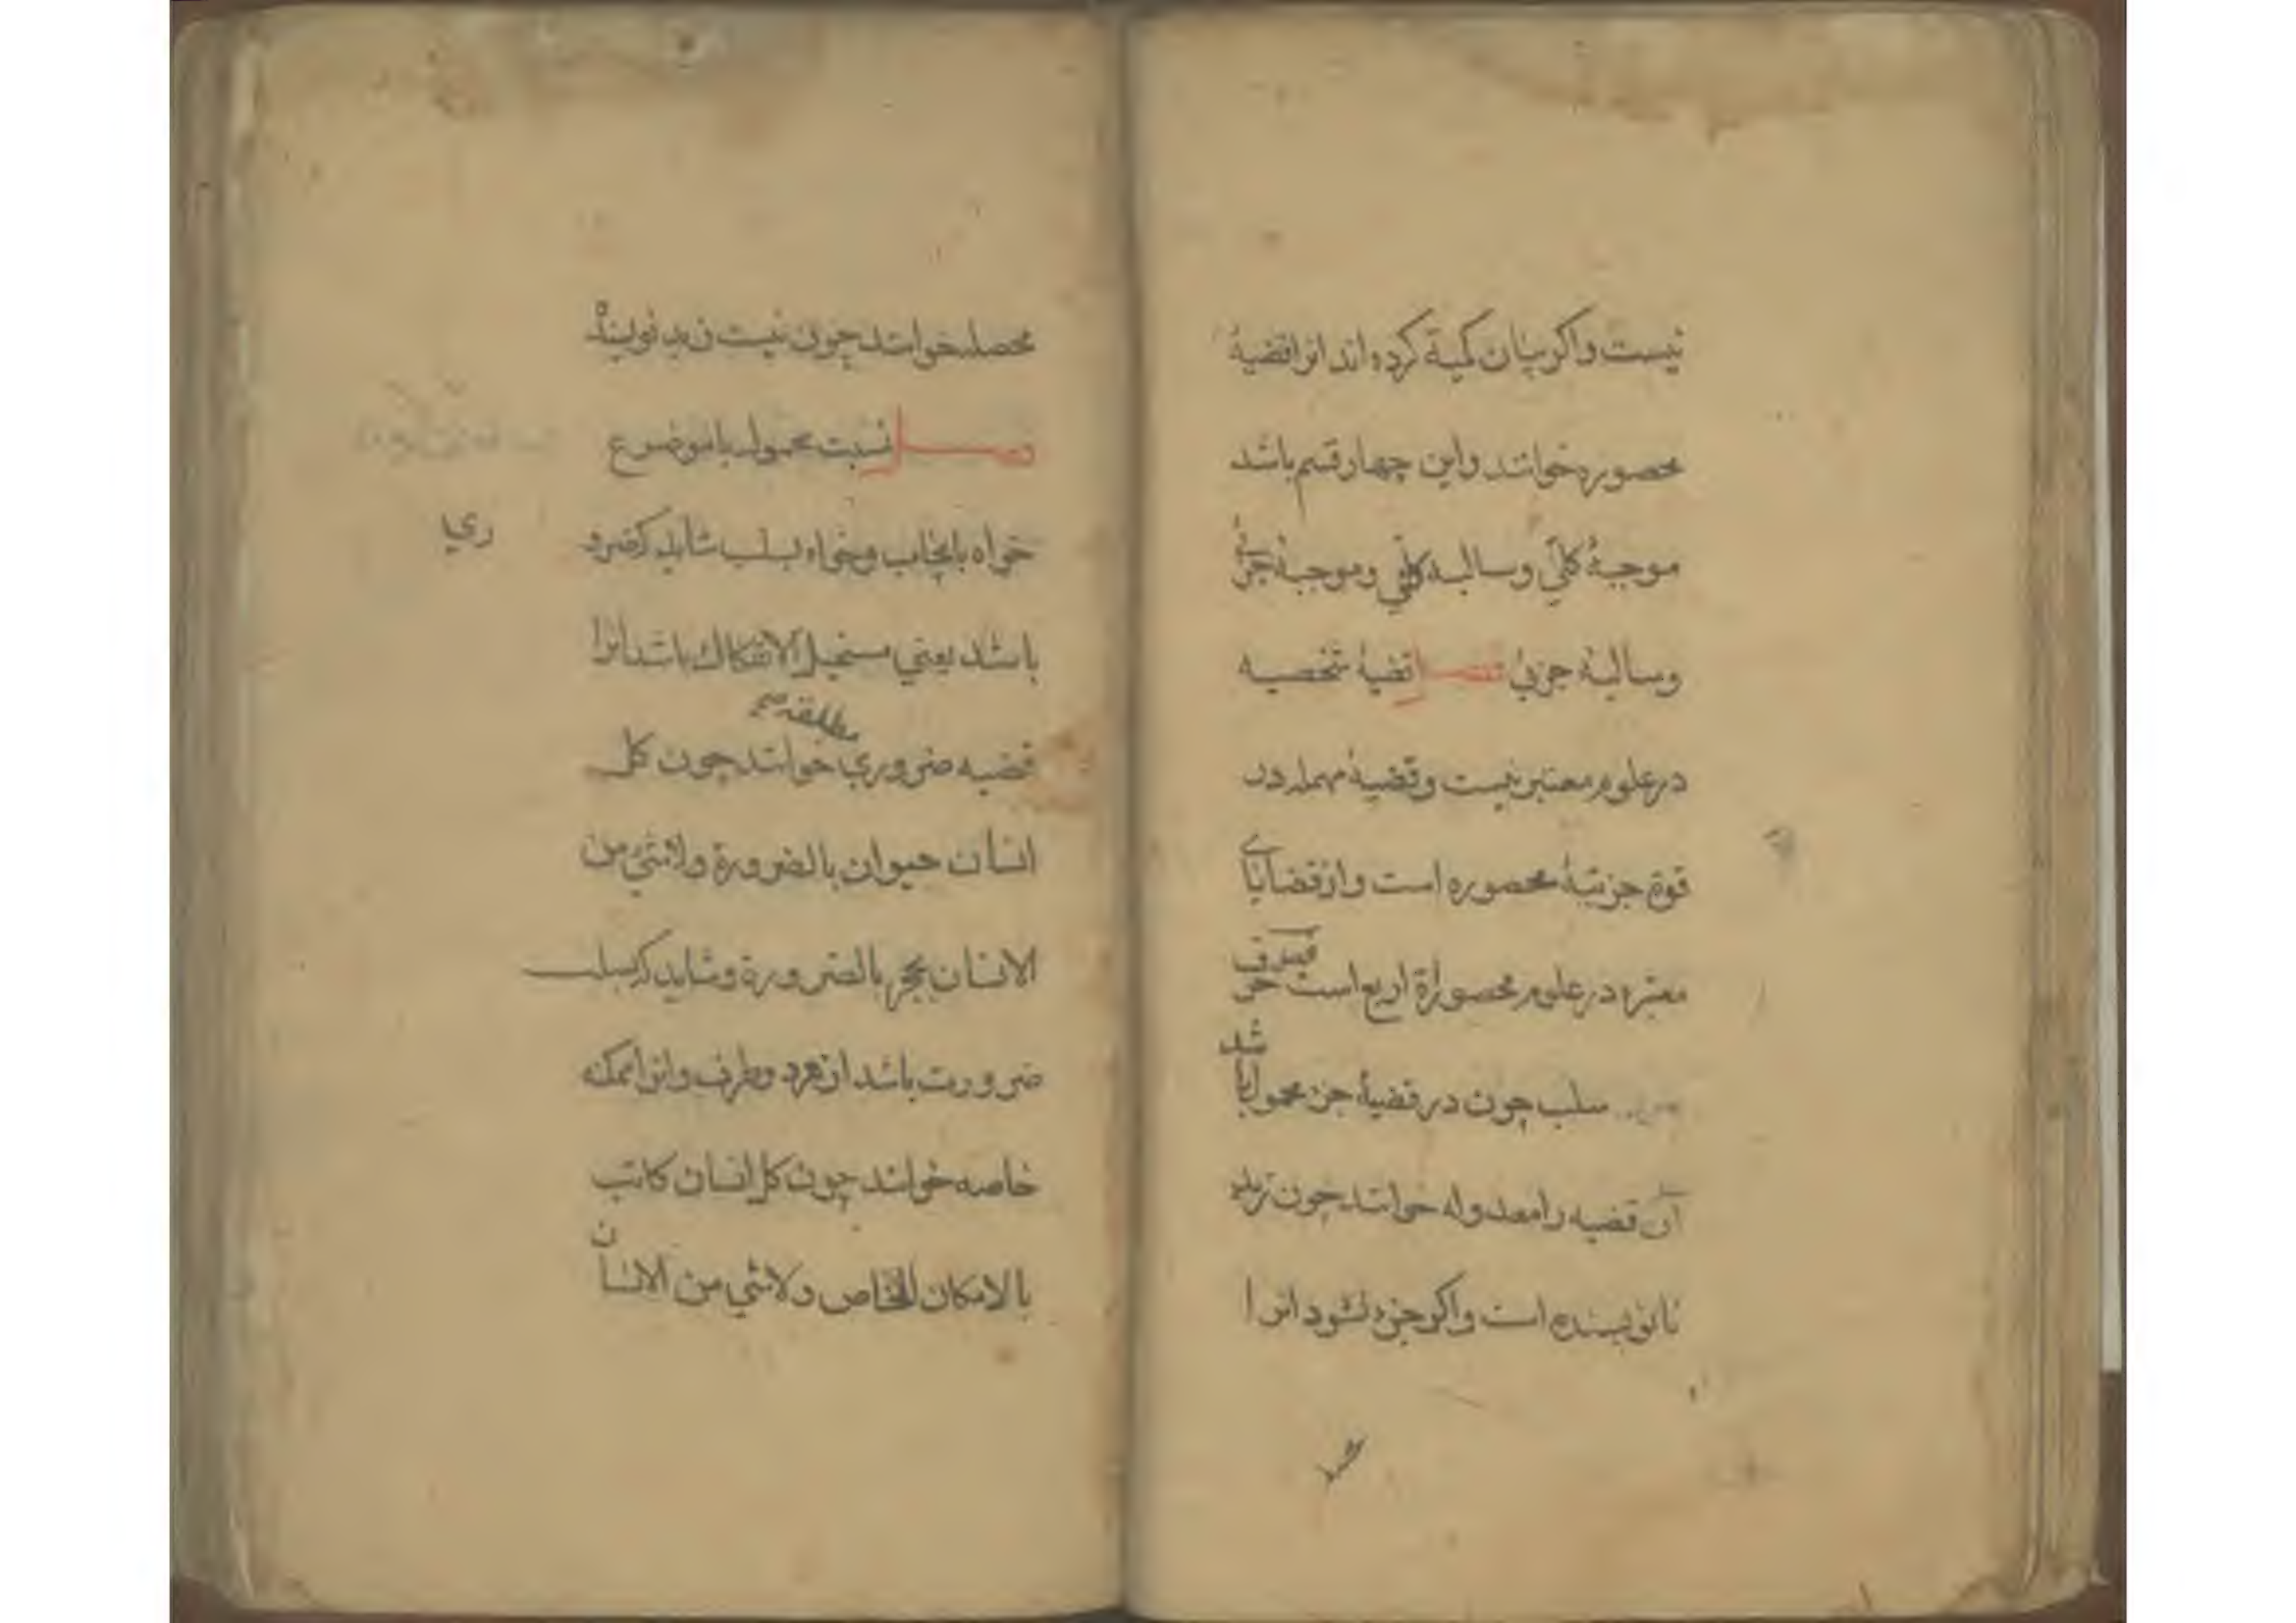 نیست واکر بیان کمیة کرده اند انرا قضیهٔ
محصوره خوانند واین چهار قسم باشد
موجبهٔ کلّي وسالبهٔ کلّي وموجبهٔ جزئي
وسالبهٔ جزئي فصل قضیهٔ شخصیه
در علوم معتبر نیست وقضیهٔ مهمله در
قوة جزئیهٔ محصوره است واز قضایای
معتبره در علوم محصوراة اربع است
فصل حرف
سلب چون در قضیهٔ جزء محمول باشد
آن قضیه را معدوله خوانند چون زید
نانویسنده است واکر جزء نشود انرا
محصله خوانند چون نیست زید نویسنده
فصل نسبت محمول باموضوع
خواه بایجاب وخواه بسلب شاید که ضرو
ري
باشد یعني مستحیل الانفکاك باشد انرا
مطلقه صح
قضیه ضروري خوانند چون کل
انسان حیوان بالضرورة ولاشي من
الانسان بحجر بالضرورة وشاید که سلب
ضرورت باشد از هردو طرف وانرا ممکنه
خاصه خوانند چون کل انسان کاتب
بالامکان الخاص ولاشي من الانسان